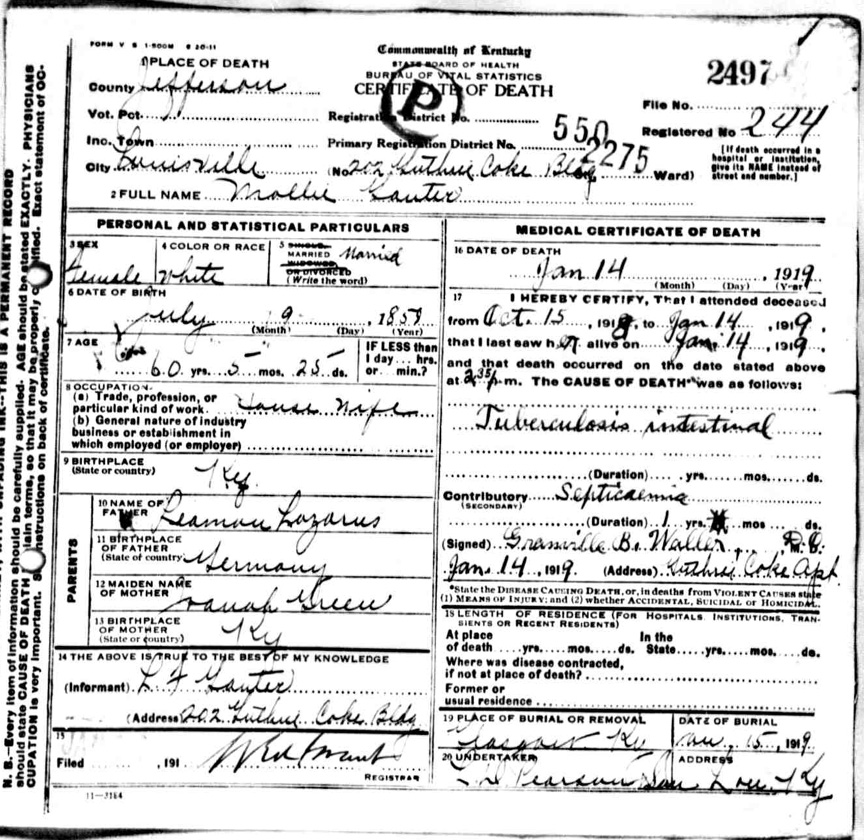 FORM V S 1-500M 6 20-11
Commonwealth of Kentucky
STATE BOARD OF HEALTH
BUREAU OF VITAL STATISTICS
CERTIFICATE OF DEATH
P
2497
1 PLACE OF DEATH
County Jefferson
Vot. Pct.
Inc. Town
City Louisville
Registration District No. 550
Primary Registration District No. 2275
(No. 202 Guthrie Coke Bldg Ward)
File No.
Registered No 244
[If death occurred in a hospital or institution, give its NAME instead of street and number.]
2 FULL NAME Mollie Ganter
PERSONAL AND STATISTICAL PARTICULARS
3 SEX Female
4 COLOR OR RACE White
5 SINGLE, MARRIED WIDOWED OR DIVORCED (Write the word) Married
6 DATE OF BIRTH
July 9 1858
(Month) (Day) (Year)
7 AGE
60 yrs. 5 mos. 25 ds.
IF LESS than 1 day... hrs. or... min.?
8 OCCUPATION
(a) Trade, profession, or particular kind of work House Wife
(b) General nature of industry business or establishment in which employed (or employer)
9 BIRTHPLACE
(State or country) Ky.
PARENTS
10 NAME OF FATHER Leamon Lazarus
11 BIRTHPLACE OF FATHER (State of country) Germany
12 MAIDEN NAME OF MOTHER Sarah Green
13 BIRTHPLACE OF MOTHER (State or country) Ky
14 THE ABOVE IS TRUE TO THE BEST OF MY KNOWLEDGE
(Informant) L F Ganter
(Address) 202 Guthrie Coke Bldg
15
Filed , 191
REGISTRAR
11-3184
MEDICAL CERTIFICATE OF DEATH
16 DATE OF DEATH
Jan 14 , 1919
(Month) (Day) (Year)
17 I HEREBY CERTIFY, That I attended deceased
from Oct. 15, 1918, to Jan 14, 1919.
that I last saw her alive on Jan. 14, 1919.
and that death occurred on the date stated above
at 2 35 p.m. The CAUSE OF DEATH* was as follows:
Tuberculosis intestinal
(Duration) yrs. mos. ds.
Contributory Septicaemia
(SECONDARY)
(Duration) 1 yrs. mos ds.
(Signed) Granville B. Waller, D.O.
Jan. 14, 1919. (Address) Guthrie Coke Apt
*State the DISEASE CAUSING DEATH, or, in deaths from VIOLENT CAUSES state
(1) MEANS OF INJURY; and (2) whether ACCIDENTAL, SUICIDAL or HOMICIDAL.
18 LENGTH OF RESIDENCE (FOR HOSPITALS, INSTITUTIONS, TRANSIENTS OR RECENT RESIDENTS)
At place of death yrs. mos. ds. In the State yrs. mos. ds.
Where was disease contracted, if not at place of death?
Former or usual residence
19 PLACE OF BURIAL OR REMOVAL
Glasgow Ky
DATE OF BURIAL
Jan, 15, 1919
20 UNDERTAKER
L D Pearson Son
ADDRESS
Lou Ky